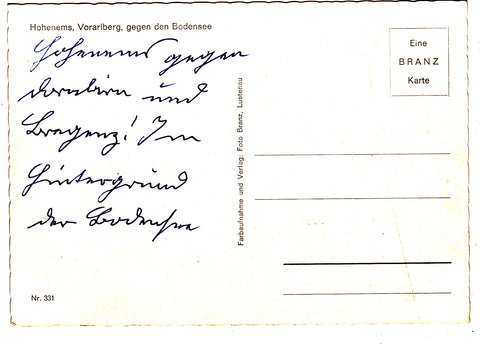 Hohenems, Vorarlberg, gegen den Bodensee
Hohenems gegen
Dornbirn und
Bregenz! Im
Hintergrund
der Bodensee
Eine
BRANZ
Karte
Farbaufnahme und Verlag: Foto Branz, Lustenau
Nr. 331